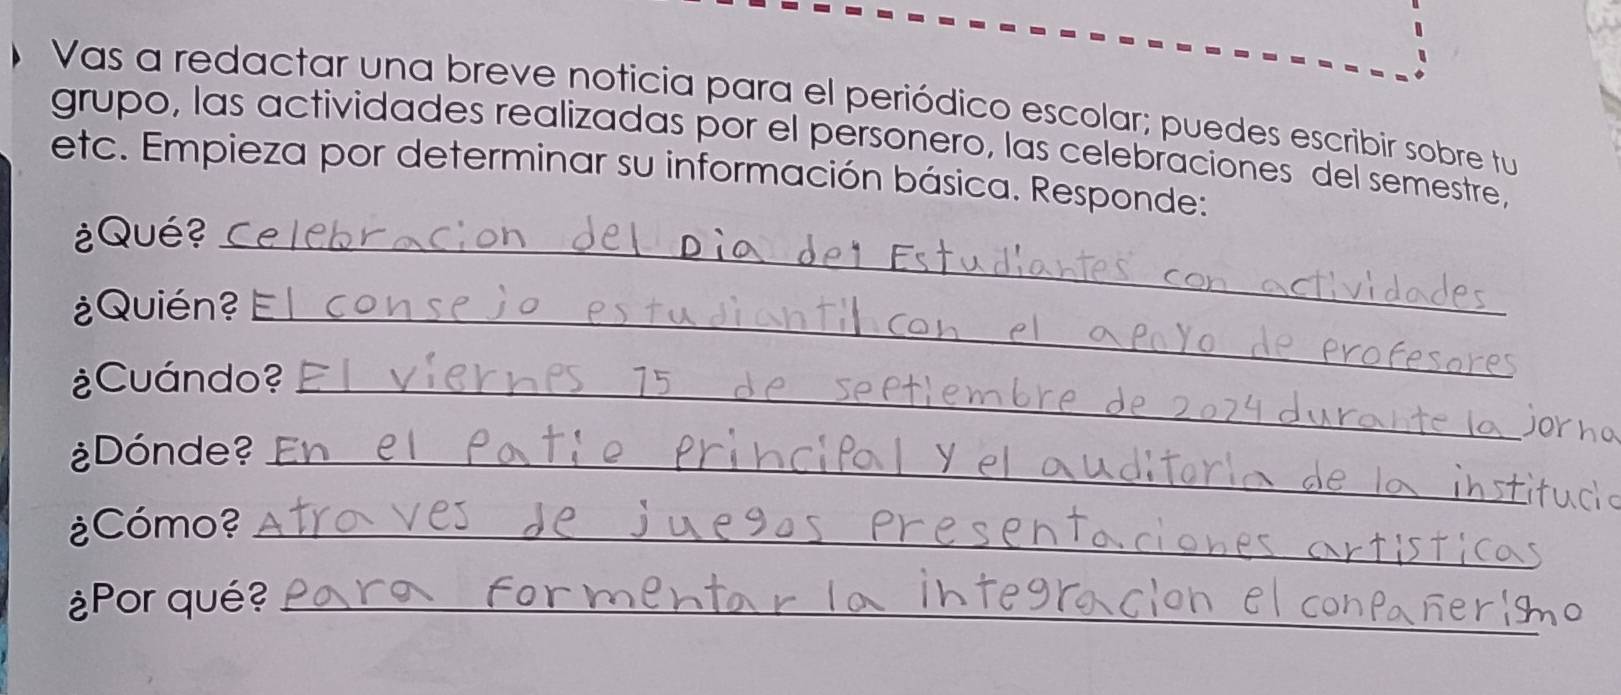 Vas a redactar una breve noticia para el periódico escolar; puedes escribir sobre tu
grupo, las actividades realizadas por el personero, las celebraciones del semestre,
etc. Empieza por determinar su información básica. Responde:
¿Qué? Celebracion del Dia del Estudiantes con actividades
¿Quién? El consejo estudiantil con el apoyo de profesores
¿Cuándo? El viernes 15 de septiembre de 2024 durante la jorna
¿Dónde? En el patio principal y el auditoria de la institucio
¿Cómo? Atraves de juegos presentaciones artisticas
¿Por qué? para formentar la integracion el conpañerismo